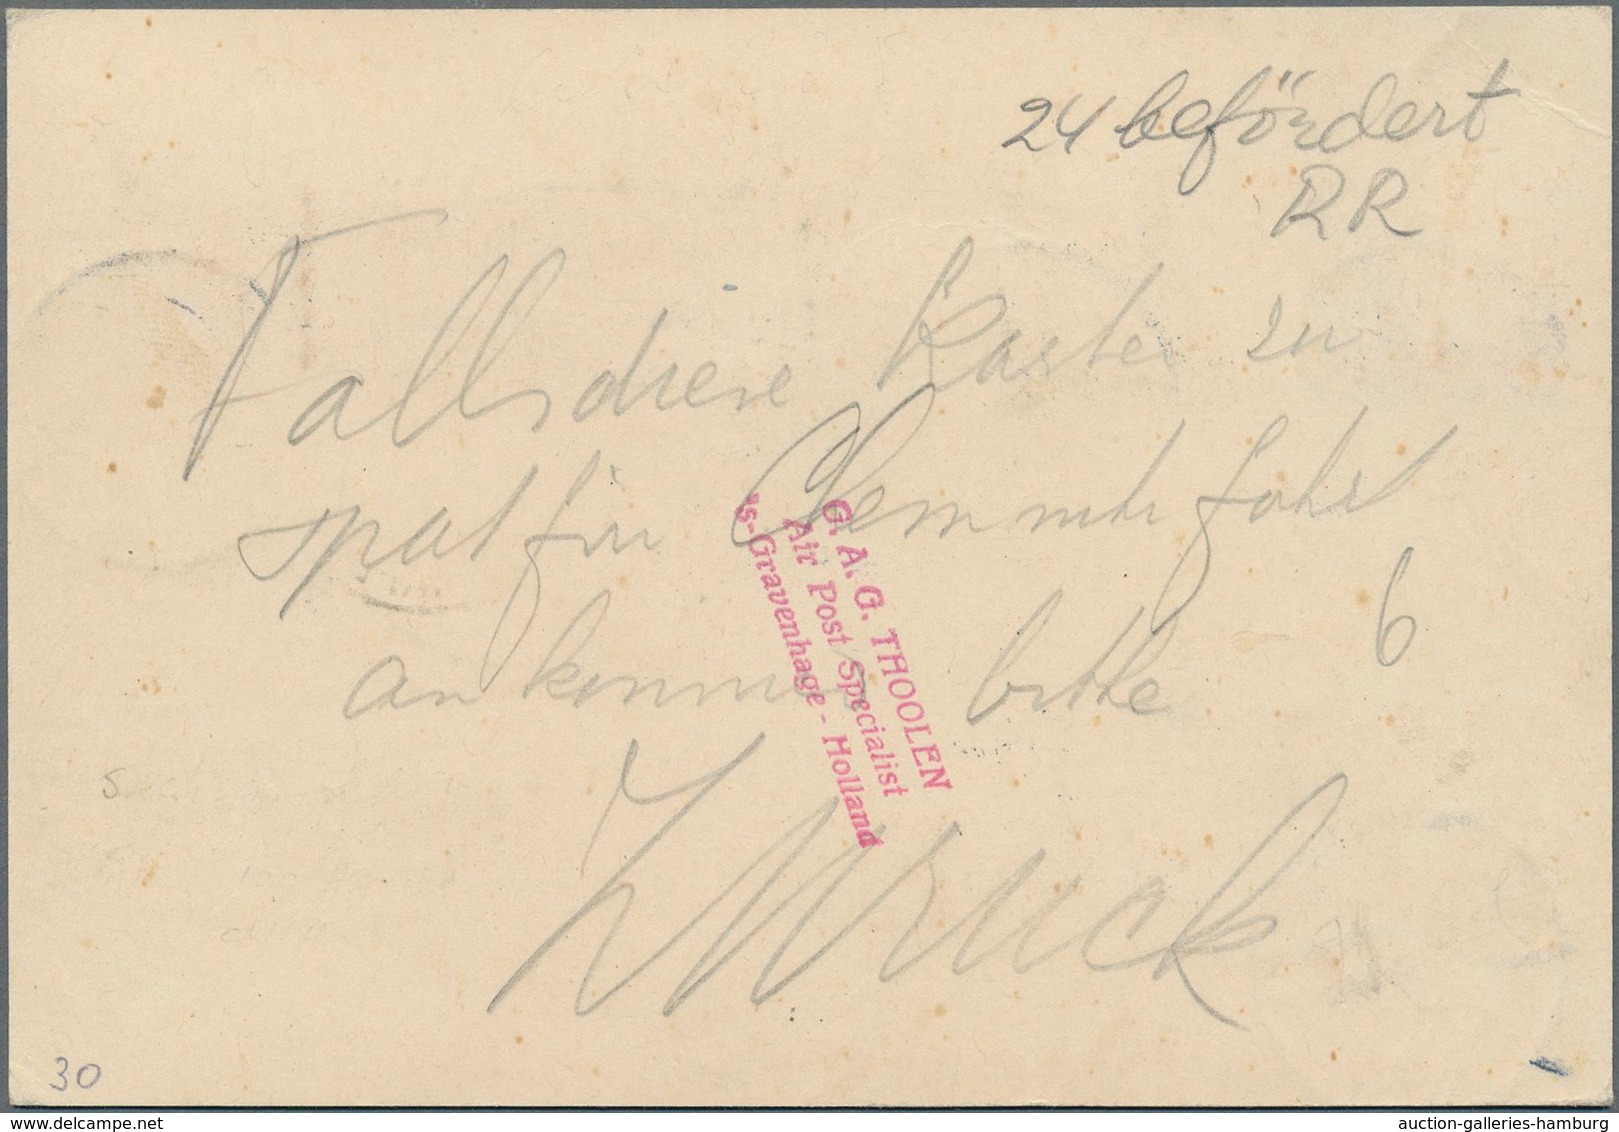 24 befördert
RR
Falls diese Karte zu
spät für Chemnitzfahrt
ankommen bitte
6
zurück
G. A. G. THOOLEN
Air Post Specialist
's-Gravenhage - Holland
30
www.delcampe.net
auction-galleries-hamburg